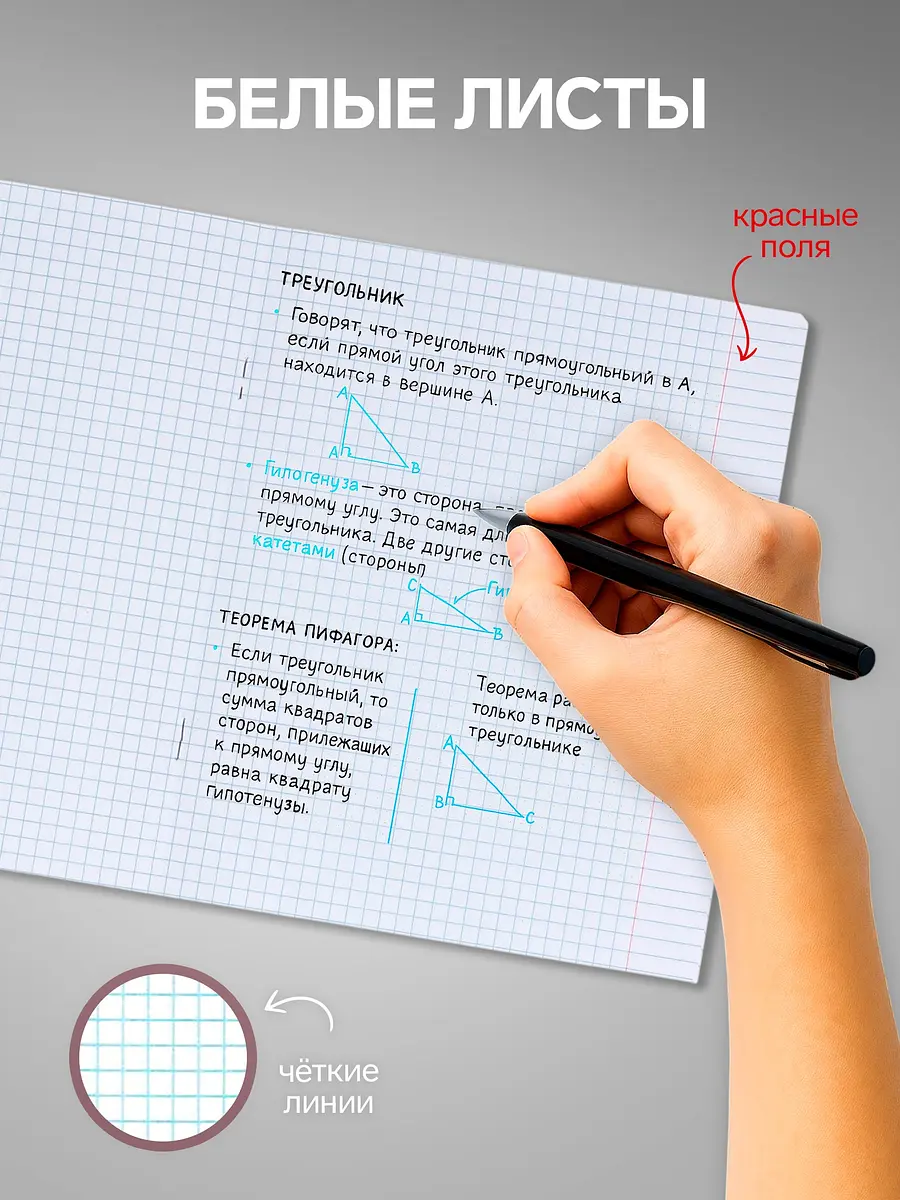 БЕЛЫЕ ЛИСТЫ
красные
поля
ТРЕУГОЛЬНИК
• Говорят, что треугольник прямоугольный в А,
если прямой угол этого треугольника
находится в вершине А.
A
A
B
• Гипотенуза – это сторона
прямому углу. Это самая
треугольника. Две другие
катетами (стороны)
C
A
B
ТЕОРЕМА ПИФАГОРА:
• Если треугольник
прямоугольный, то
сумма квадратов
сторон, прилежащих
к прямому углу,
равна квадрату
гипотенузы.
Теорема
только в
треугольнике
A
B
C
чёткие
линии